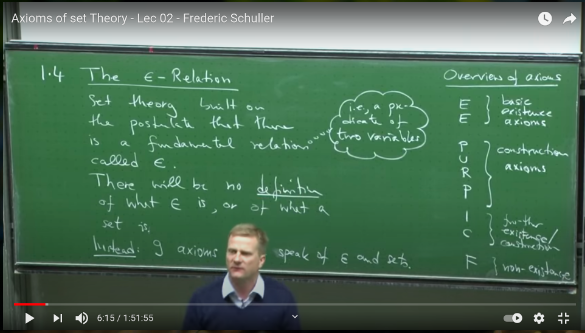 Axioms of set Theory - Lec 02 - Frederic Schuller
1.4 The ∈-Relation
Set theory built on
the postulate that there
is a fundamental relation
called ∈.
i.e., a pre-
dicate of
two variables
There will be no definition
of what ∈ is, or of what a
set is.
Instead: 9 axioms speak of ∈ and sets.
Overview of axioms
E
E
basic
existence
axioms
P
U
R
P
construction
axioms
I
C
further
existence/
construction
F
non-existence
6:15 / 1:51:55